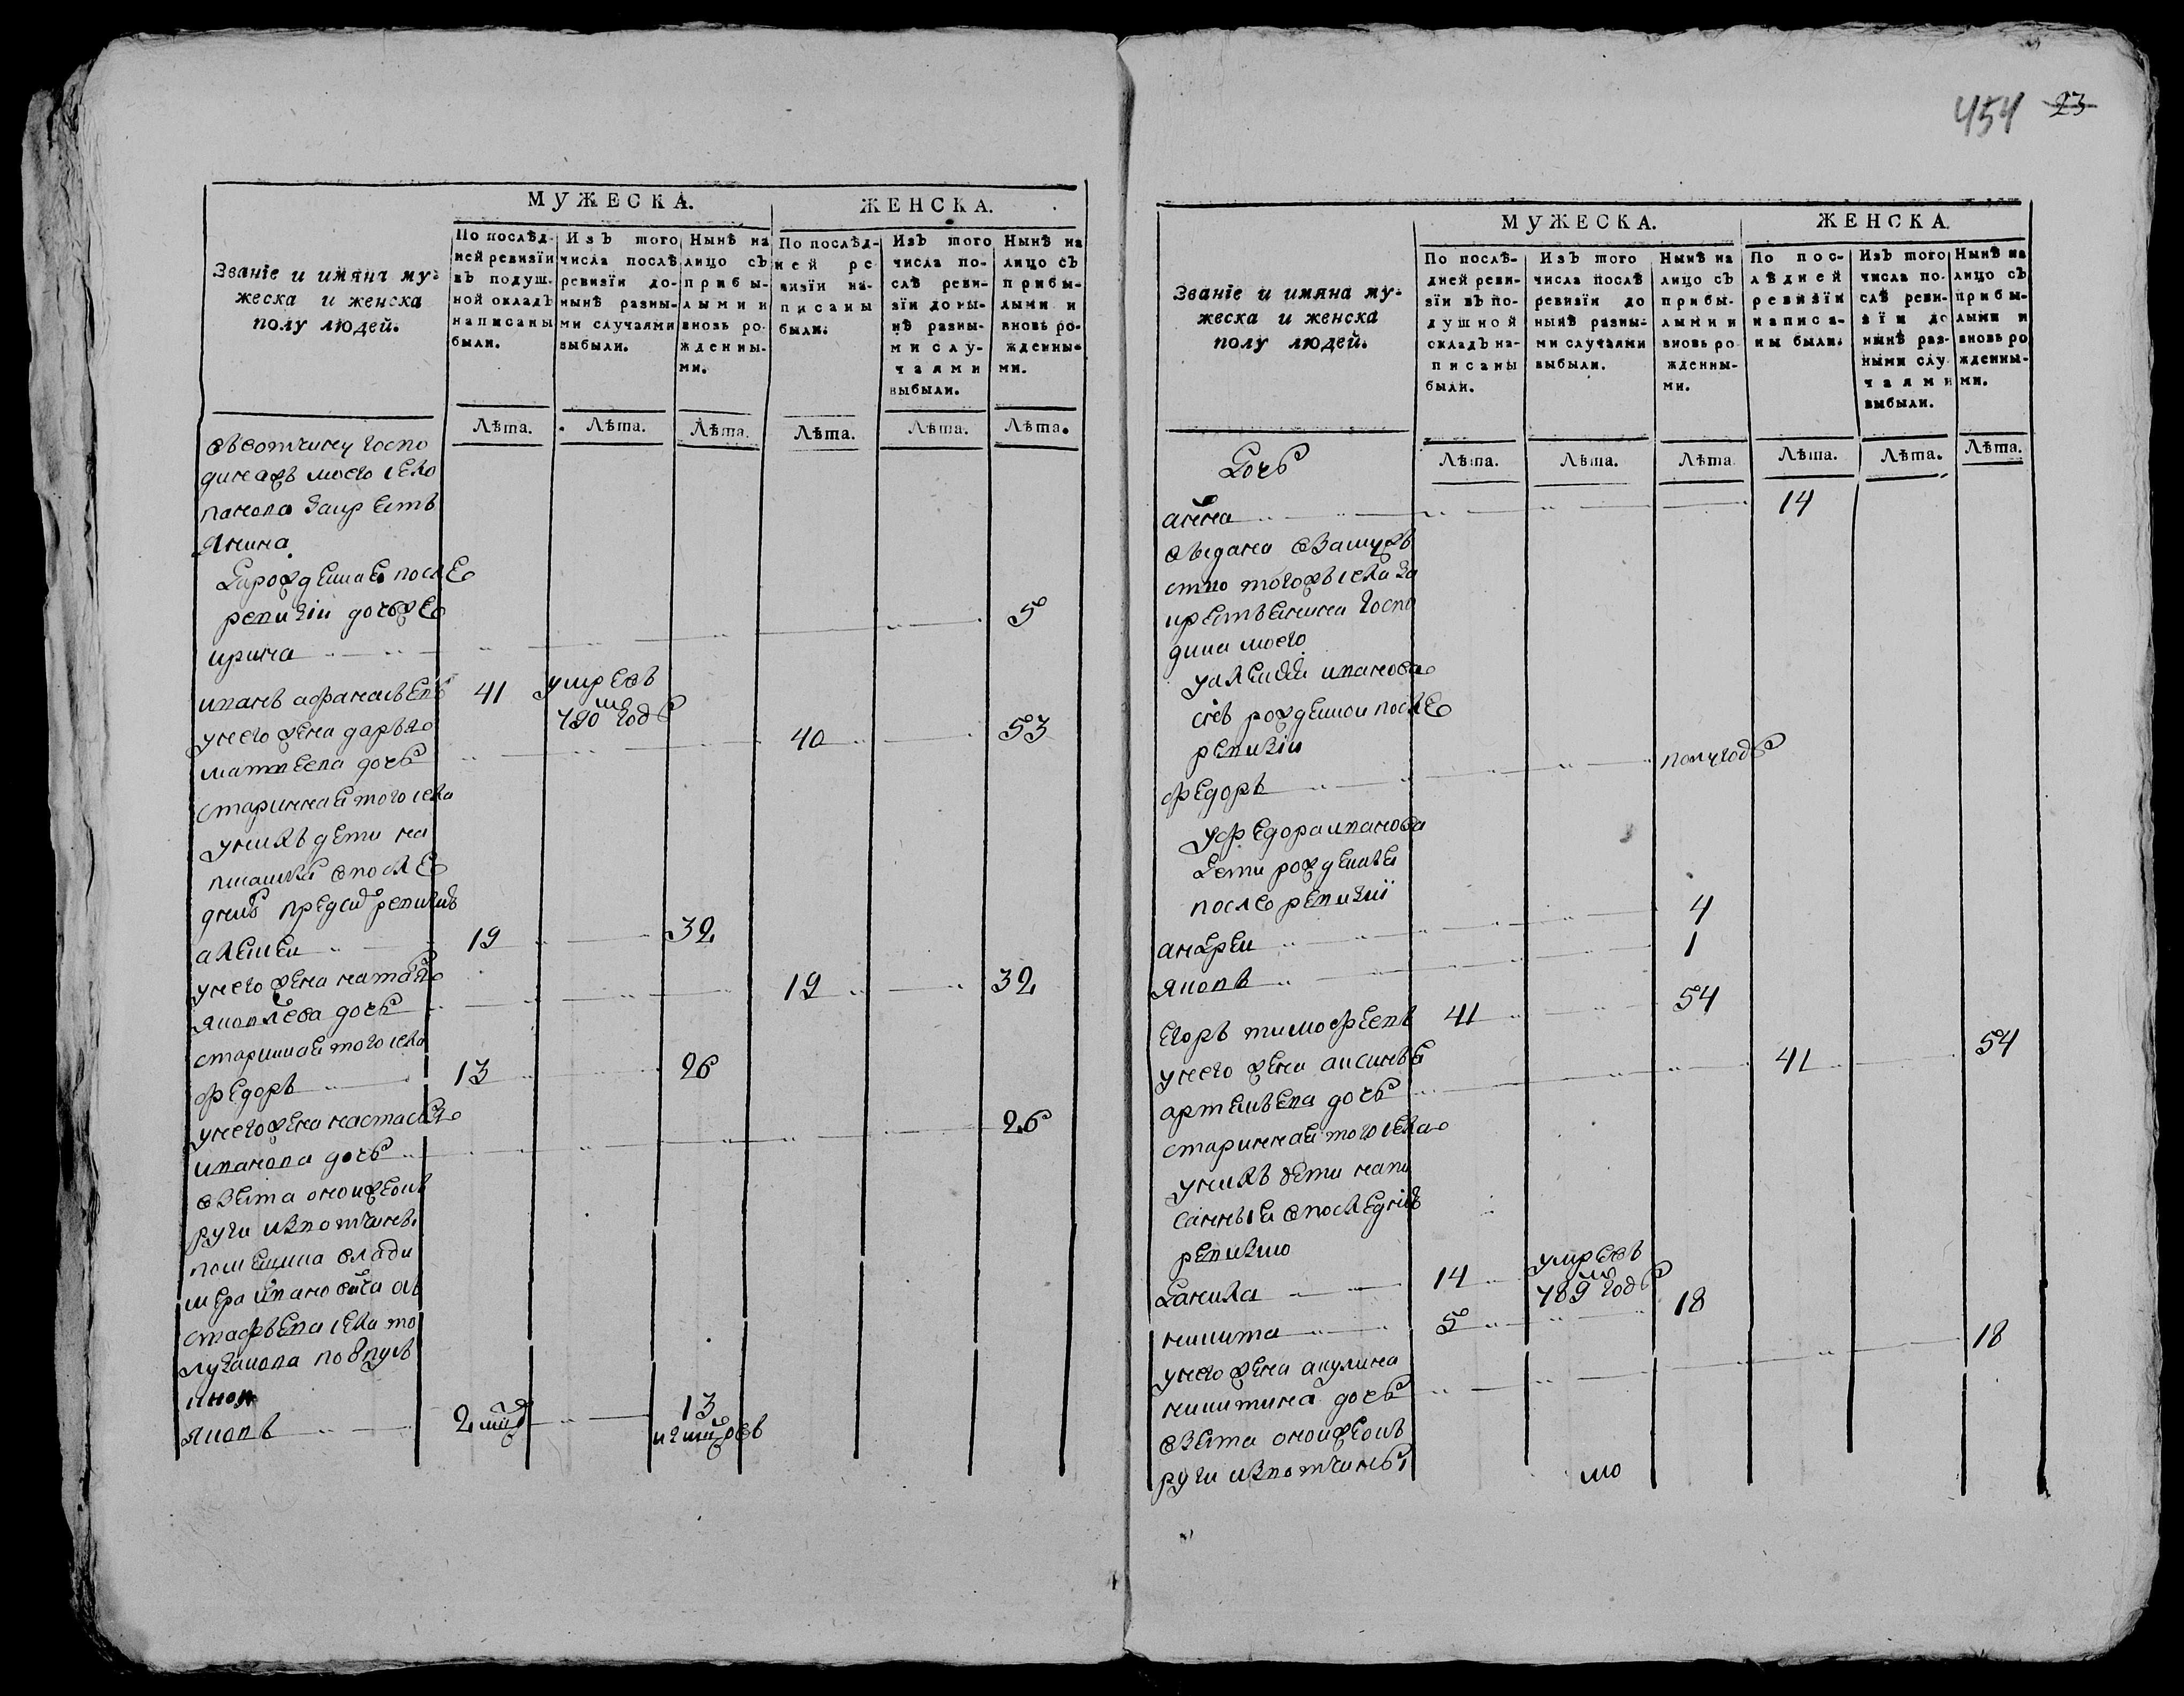 454 23
МУЖЕСКА. ЖЕНСКА.
Званіе и имяна му-
жеска и женска
полу людей.
По послѣд-
ней ревизіи
въ подуш-
ной окладъ
написаны
были.
Изъ того
числа послѣ
ревизіи до-
нынѣ разны-
ми случаями
выбыли.
Нынѣ на
лицо съ
прибы-
лыми и
вновь ро-
жденны-
ми.
По послѣд-
ней ре
визіи на-
писаны
были.
Изъ того
числа по-
слѣ реви-
зіи до ны-
нѣ разны-
ми слу-
чаями
выбыли.
Нынѣ на
лицо съ
прибы-
лыми и
вновь ро-
жденны-
ми.
Лѣта. Лѣта. Лѣта. Лѣта. Лѣта. Лѣта.
въвотчину госпо
динажъ моего села
панова крестъ
янина
рожденная после
ревизіи дочь
ирина 5
иванъ афанасьевъ 41 умре въ
790м годе
унего жена дарья
матвеева дочь 40 53
стариннаа того села
унихъ дети на
писаные въпосле
днею предъ ревизию
алексеи 19 32
унего жена наталя
яковлева дочь 19 32
стариннаа того села
федоръ 13 26
унего жена настася
иванова дочь 26
взята оной
руги извотчины
помещика влади
мера ивановича
стафьева села
луканова
яковъ 2 13
МУЖЕСКА. ЖЕНСКА.
Званіе и имяна му-
жеска и женска
полу людей.
По послѣ-
дней реви-
зіи въ по-
душной
окладъ на-
писаны
были.
Изъ того
числа послѣ
ревизіи до
нынѣ разны-
ми случаями
выбыли.
Нынѣ на
лицо съ
прибы-
лыми и
вновь ро
жденны-
ми.
По пос-
лѣдней
ревизіи
написа-
ны были.
Изъ того
числа по-
слѣ реви-
зіи до
нынѣ раз-
ными слу-
чаями
выбыли.
Нынѣ на
лицо съ
прибы-
лыми и
вновь ро
жденны-
ми.
Лѣта. Лѣта. Лѣта. Лѣта. Лѣта. Лѣта.
дочь
анна 14
выдана взамуже
ство тогожъ села
крестьянина госпо
дина моего
уалексеи иванова
снъ рожденои после
ревизіи
федоръ полугоде
уфедора иванова
дети рожденые
после ревизіи
андреи 4
яковъ 1
егоръ тимофеевъ 41 54
унего жена аксинья
артемьева дочь 41 54
стариннаа того села
унихъ дети напи
санныя впоследнею
ревизию
данила 14 умре въ
789м годе
никита 5 18
унего жена акулина
никитина дочь 18
взята оной
руги извотчины
мо